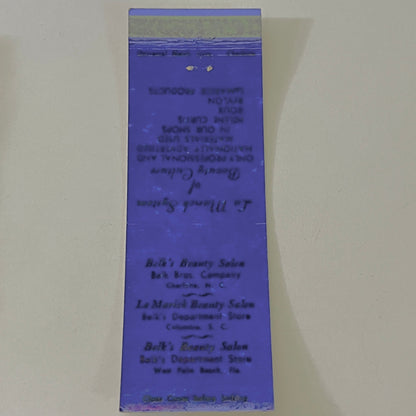 La Marick System
of
Beauty Culture
ONLY PROFESSIONAL AND
NATIONALLY ADVERTISED
MATERIALS USED
IN OUR SHOPS
HELENE CURTIS
ROUX
REVLON
PRODUCTS
Belk's Beauty Salon
Belk Bros. Company
Charlotte, N. C.
La Marick Beauty Salon
Belk's Department Store
Columbia, S. C.
Belk's Beauty Salon
Belk's Department Store
West Palm Beach, Fla.
Close Cover Before